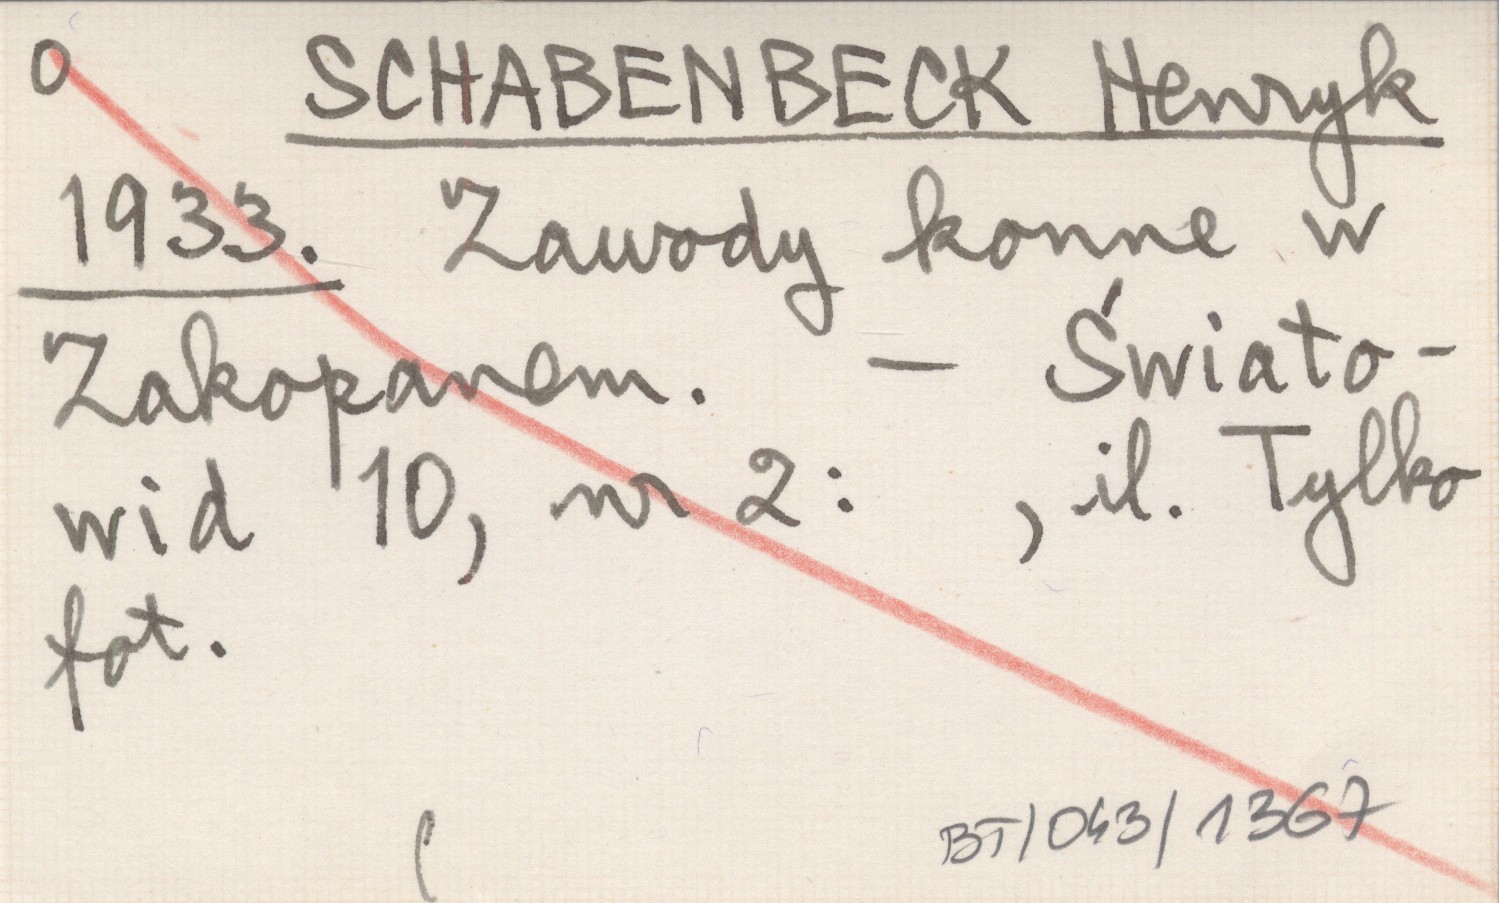 O SCHABENBECK Henryk
1933. Zawody konne w
Zakopanem. — Świato-
wid 10, nr 2: , il. Tylko
fot.
(
BT/043/1367